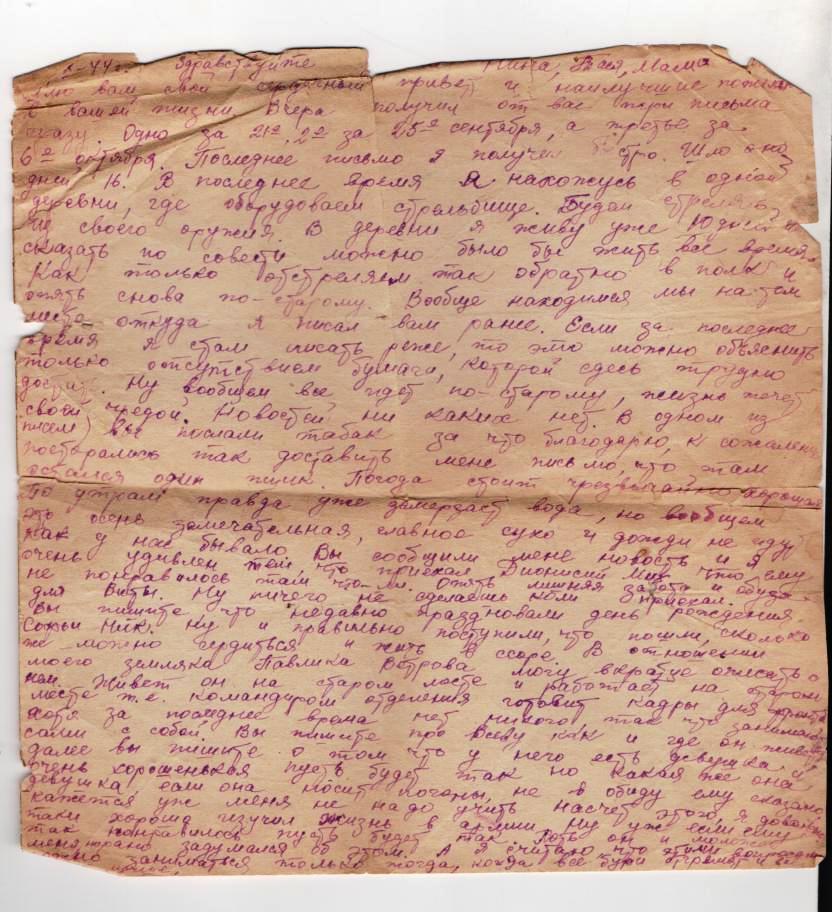 X-44 г. Здравствуйте Нина, Вася, Мама
Шлю вам свой сердечный привет и наилучшие пожелания
в вашей жизни Вчера получил от вас три письма
сразу. Одно за 21е, 2е за 25е сентября, а третье за
6е октября. Последнее письмо я получил быстро. Шло оно
дней 16. В последнее время я нахожусь в одной
деревни, где оборудоваем стрельбище. Будем стрелять
из своего оружия. В деревни я живу уже 10 дней и
сказать по совести можно было бы жить все время.
Как только отстреляем так обратно в полк и
опять снова по-старому. Вообще находимся мы на том
месте откуда я писал вам ранее. Если за последнее
время я стал писать реже, то это можно объяснить
только отсутствием бумаги, которой сдесь трудно
достать. Ну вообщем все идет по-старому, жизнь течет
своей чредой. Новостей ни каких нет. В одном из
писем вы послали табак за что благодарю, к сожалению
постарались так доставить мне письмо, что там
остался один пшик. Погода стоит чрезвычайно хорошая
По утрам правда уже замерзает вода, но вообщем
это осень замечательная, главное сухо и дожди не идут
как у нас бывало. Вы сообщили мене новость и я
очень удивлен тем, что приехал Дионисий Мих. что ему
не понравилось там что-ли. Опять лишняя забота и обида
для Виты. Ну ничего не сделаешь коли приехал.
Вы пишите что недавно праздновали день рождения
Софьи Ник. Ну и правильно поступили, что пошли, сколько
же можно сердиться и жить в ссоре. В отношении
моего земляка Павлика Острова могу вкратце описать о
нем. Живет он на старом месте и работает на старом
месте т.е. командиром отделения готовит кадры для фронта
хотя за последнее время нет никого, так что занимаются
сами с собой. Вы пишите про Севу как и где он живет
далее вы пишите о том что у него есть девушка и
очень хорошенькая пусть будет так но какая же она
девушка, если она носит погоны, не в обиду ему сказано
кажется уже меня не надо учить насчет этого, я довольно
таки хорошо изучил жизнь в армии. Ну уже если ему
так понравилось пусть будет так. Хоть он и молодой
меня рано задумался об этом. А я считаю что этими вопросами
можно заниматься только тогда, когда все бури отгремят и